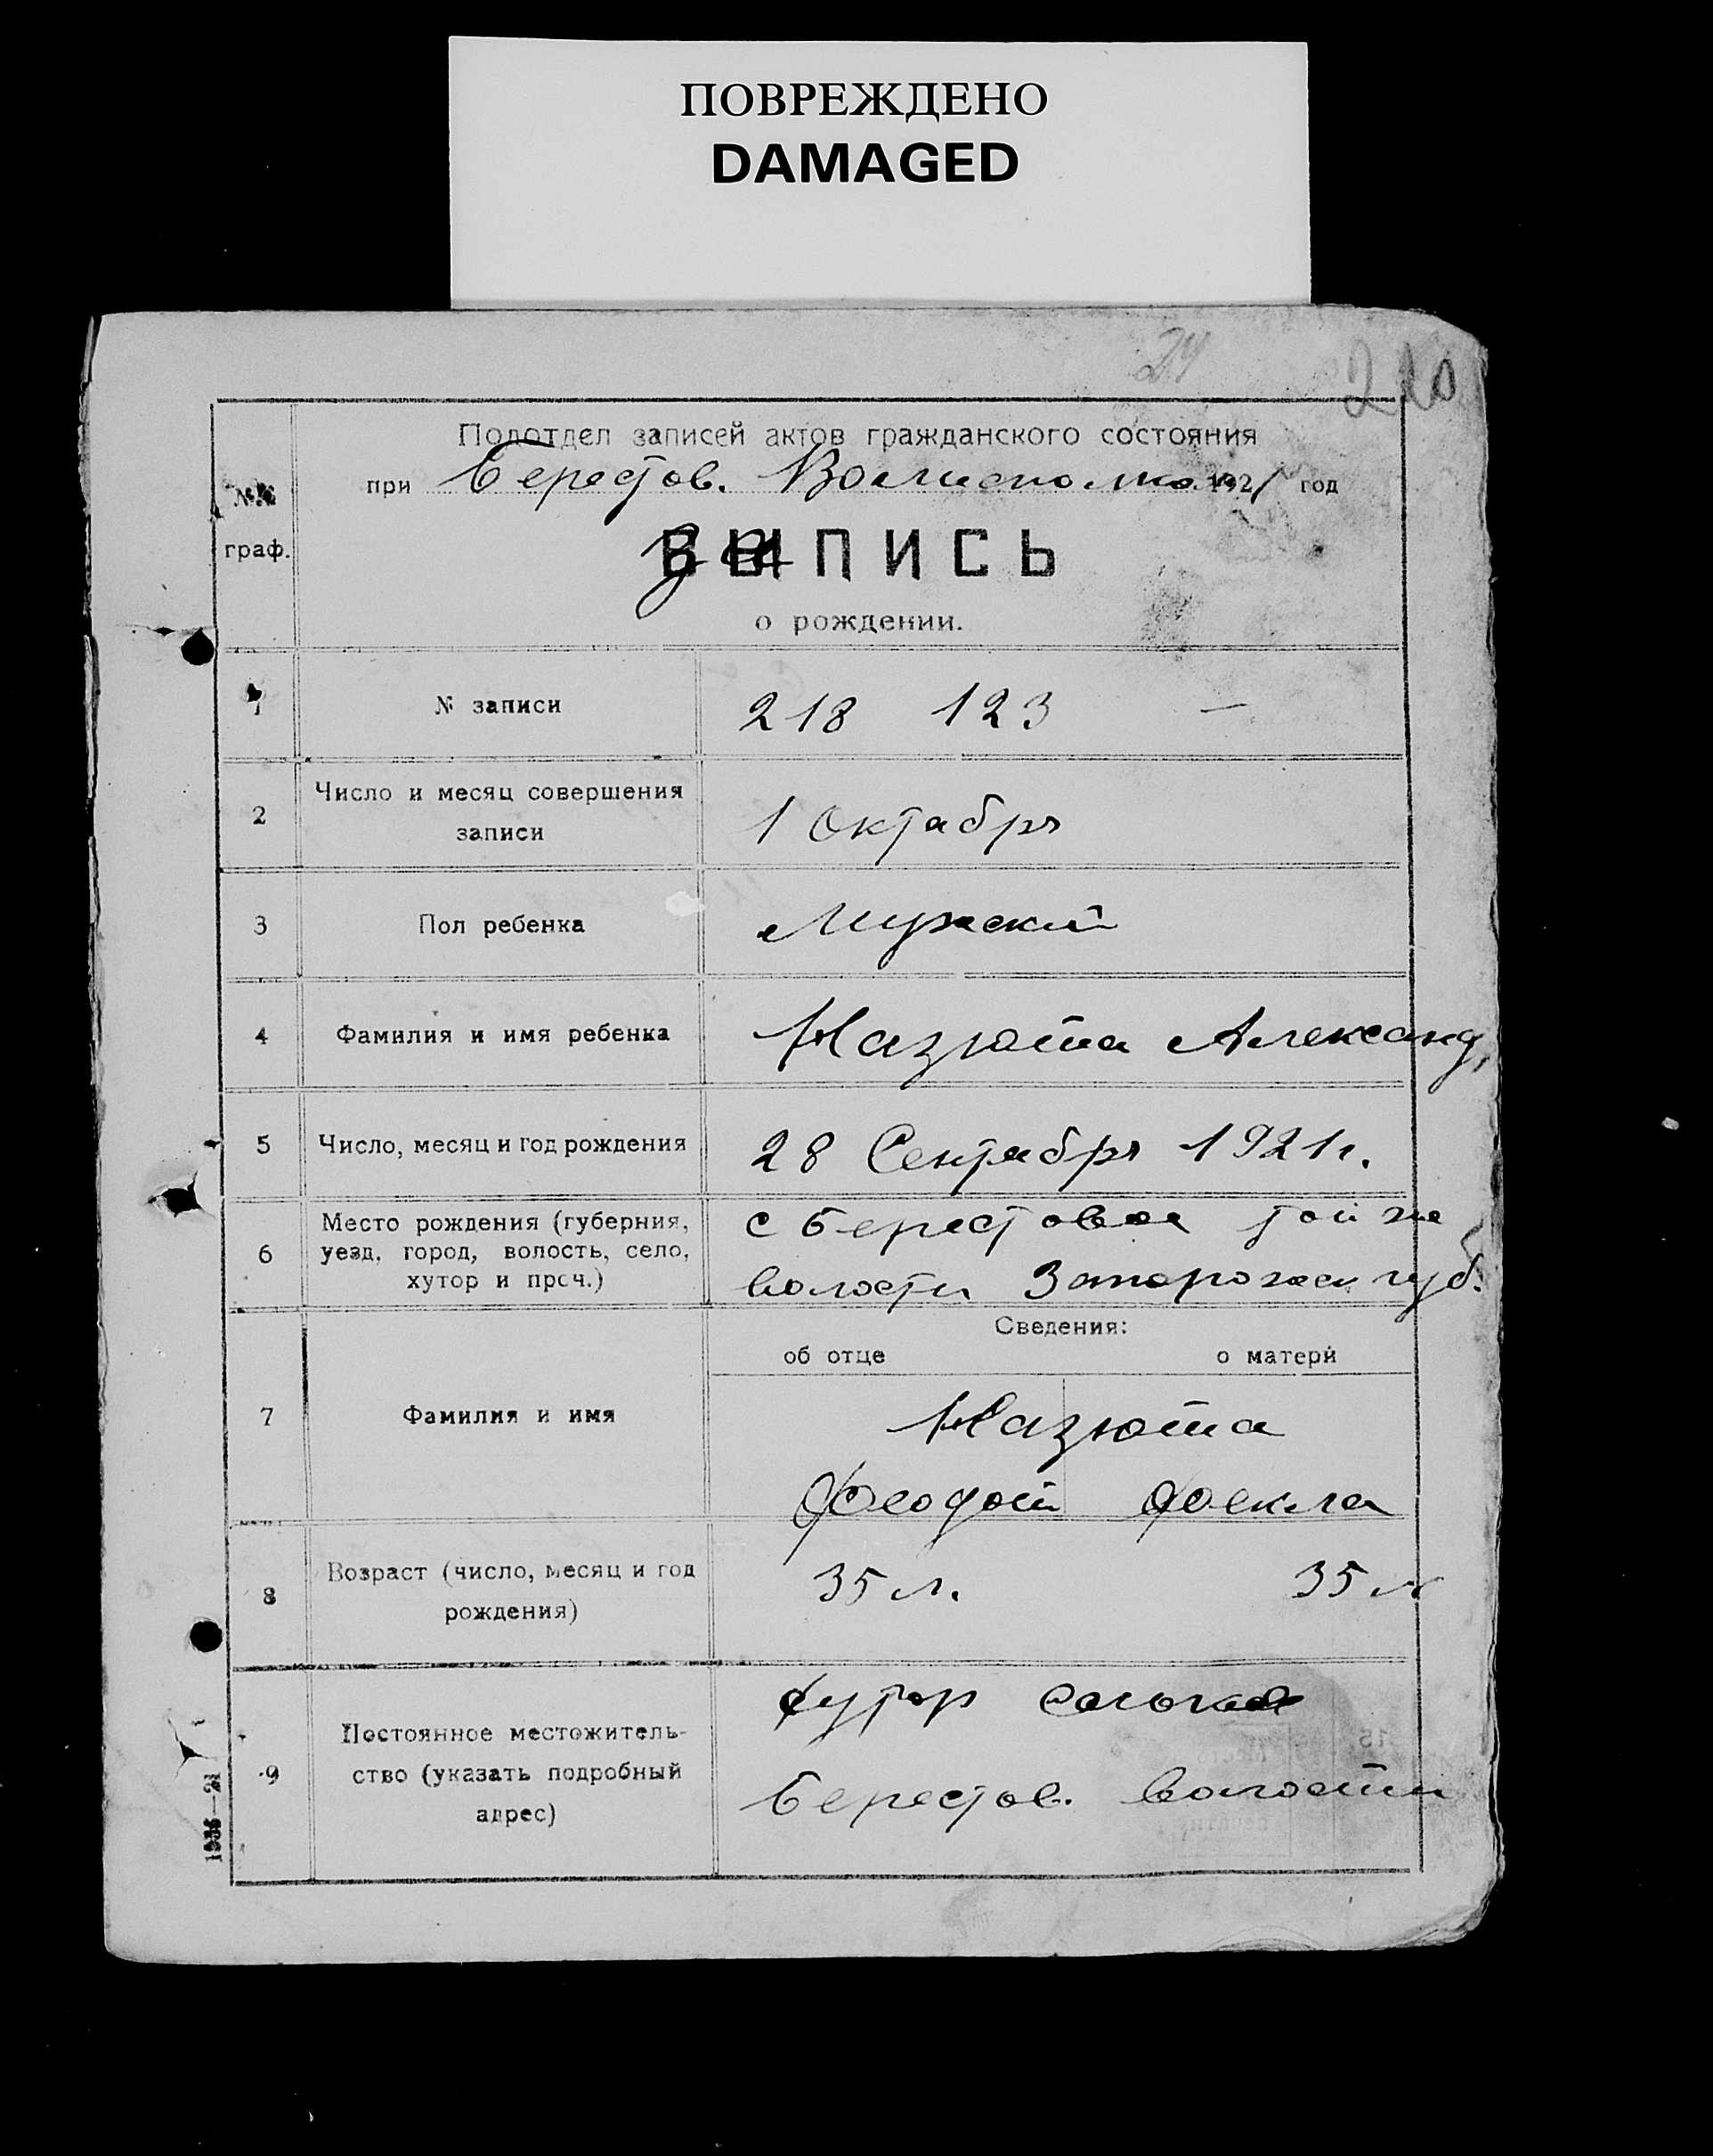 ПОВРЕЖДЕНО
DAMAGED
24
210
Подотдел записей актов гражданского состояния
при Берестов. Волисполко. 1921 год
№№
граф.
ВЫПИСЬ
За
о рождении.
1 № записи 218 123 —
2 Число и месяц совершения
записи 1 Октабря
3 Пол ребенка Мужский
4 Фамилия и имя ребенка Назюта Александ,
5 Число, месяц и год рождения 28 Сентабря 1921 г.
6 Место рождения (губерния,
уезд, город, волость, село,
хутор и проч.)
с Берестовое той же
волости Запорожск губ.
Сведения:
об отце о матери
7 Фамилия и имя
Назюта
Феодот Фекла
8 Возраст (число, месяц и год
рождения)
35 л. 35 л
9 Постоянное местожитель-
ство (указать подробный
адрес)
хутор
Берестов. волости